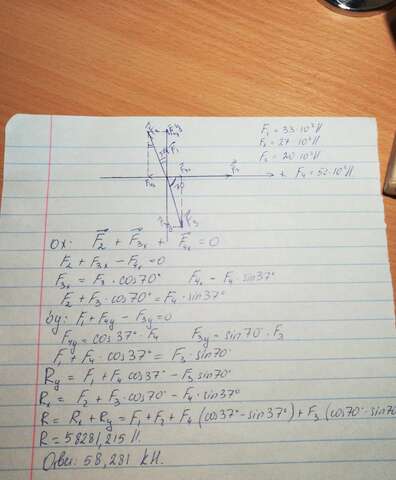 F₁ = 33·10³ Н
F₂ = 27·10³ Н
F₃ = 20·10³ Н
F₄ = 52·10³ Н.
x
ox: F₂ + F₃ₓ + F₄ₓ = 0
F₂ + F₃ₓ – F₄ₓ = 0
F₃ₓ = F₃ · cos70° F₄ₓ = F₄ · sin37°
F₂ + F₃ · cos70° = F₄ · sin37°
oy: F₁ + F₄y – F₃y = 0
F₄y = cos37° · F₄ F₃y = sin70° · F₃
F₁ + F₄ · cos37° = F₃ · sin70°
Ry = F₁ + F₄ cos37° – F₃ sin70°
Rₓ = F₂ + F₃ · cos70° – F₄ · sin37°
R = Rₓ + Ry = F₁ + F₂ + F₄ (cos37° – sin37°) + F₃ (cos70° – sin70
R = 58281,215 Н.
Ответ: 58,281 кН.